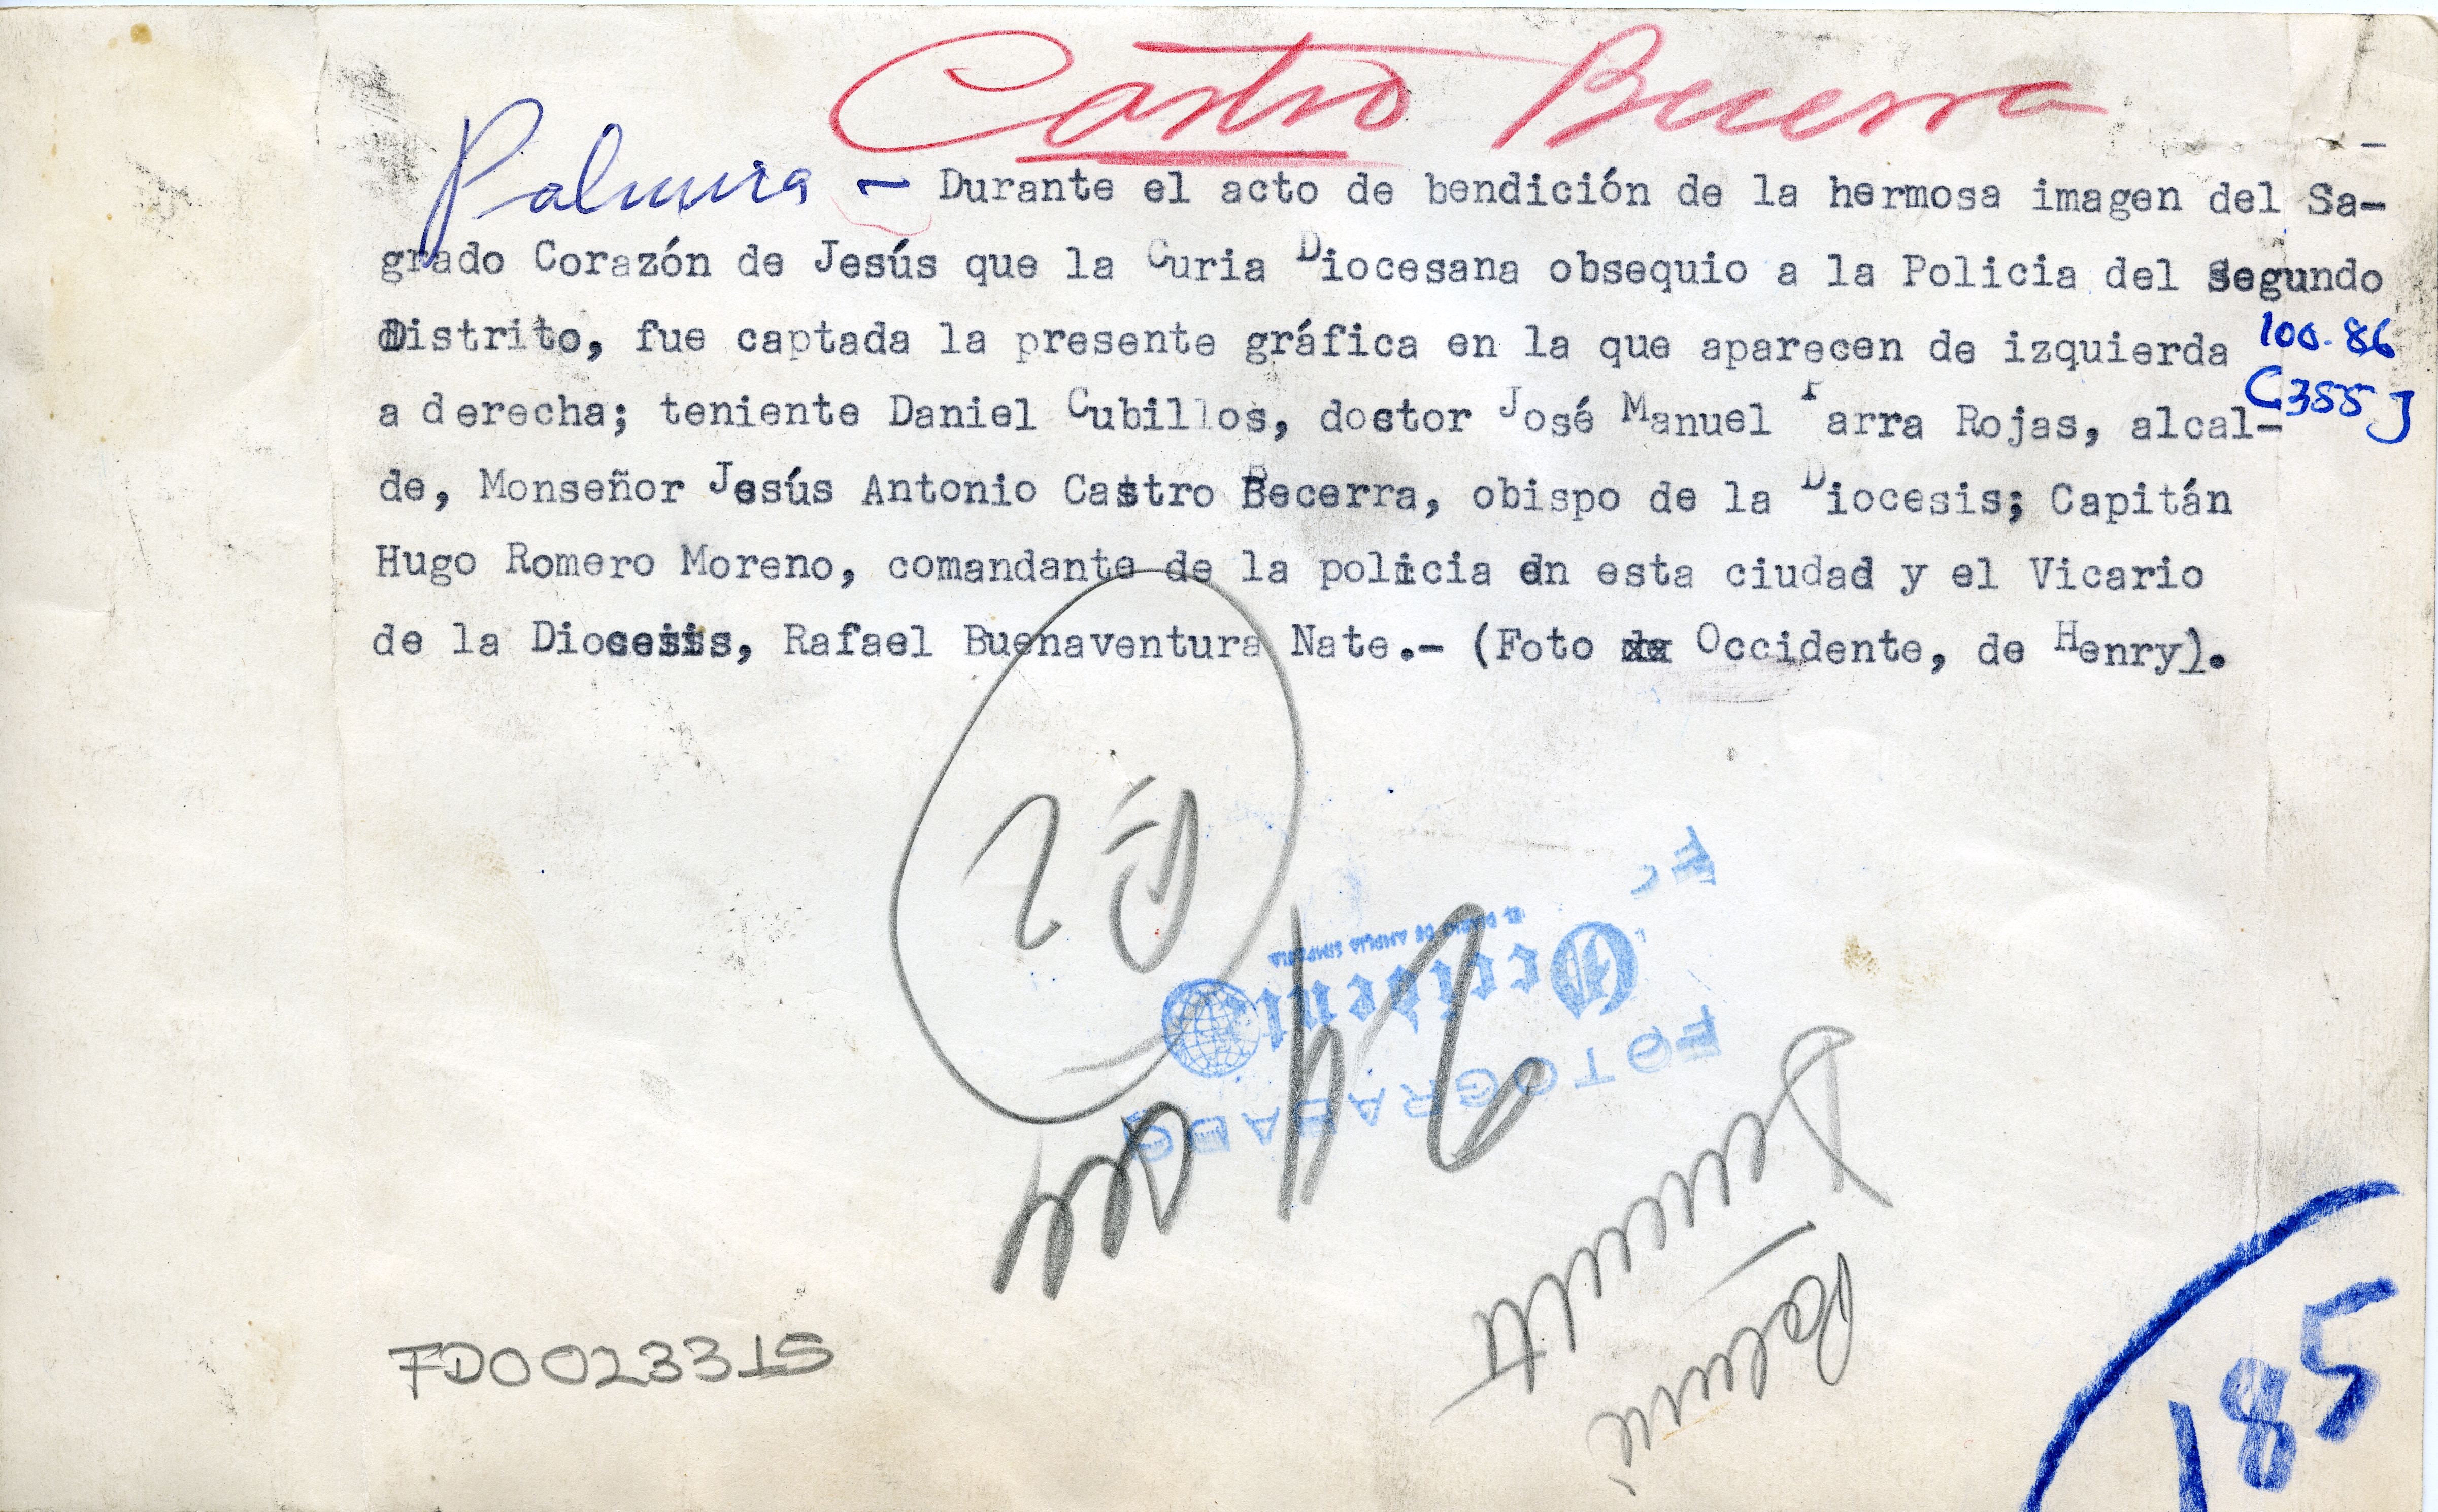 Castro Becerra
Palmira - Durante el acto de bendición de la hermosa imagen del Sa-
grado Corazón de Jesús que la Curia Diocesana obsequio a la Policia del Segundo
Distrito, fue captada la presente gráfica en la que aparecen de izquierda
100.86
a derecha; teniente Daniel Cubillos, doctor José Manuel Parra Rojas, alcal-
C355J
de, Monseñor Jesús Antonio Castro Becerra, obispo de la Diocesis; Capitán
Hugo Romero Moreno, comandante de la policia en esta ciudad y el Vicario
de la Diocesis, Rafael Buenaventura Nate.- (Foto de Occidente, de Henry).
FOTOGRABADO
Occidente
EL DIARIO DE AMPLIA SIMPATIA
FD0023315
185